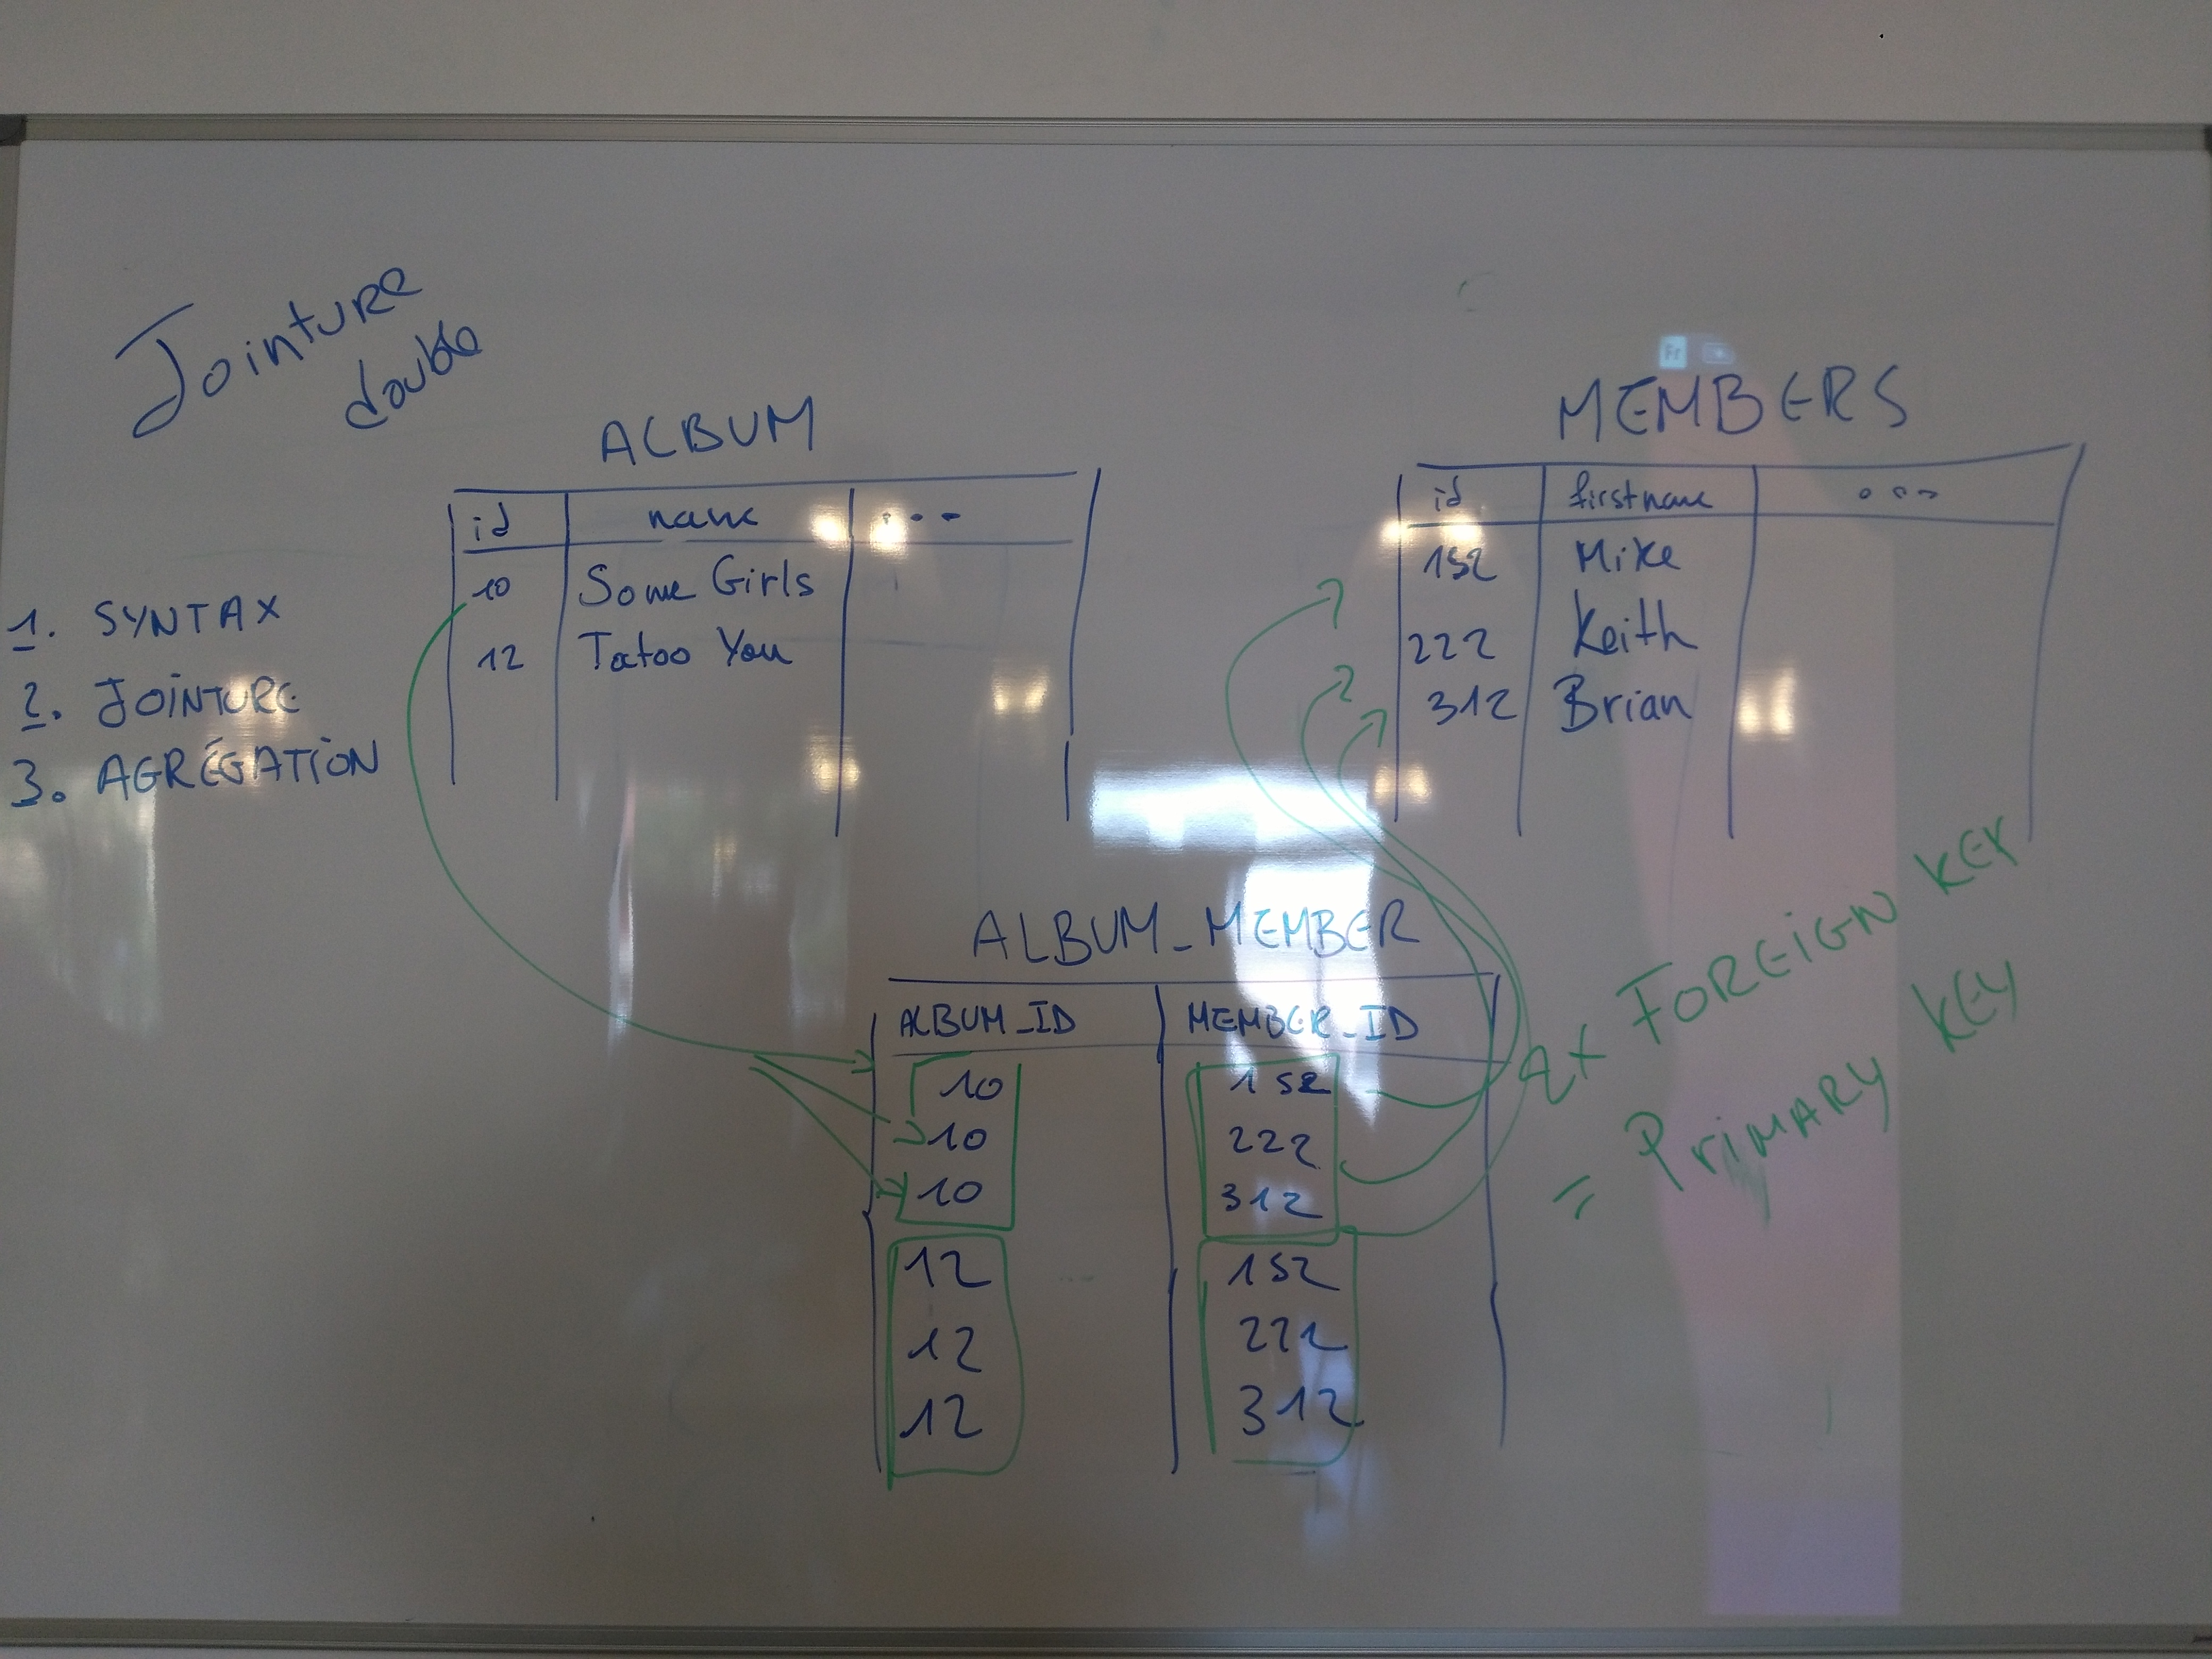 Jointure
double
1. SYNTAX
2. JOINTURE
3. AGRÉGATION
ALBUM
id name ...
10 Some Girls
12 Tatoo You
MEMBERS
id firstname ...
152 Mike
222 Keith
312 Brian
ALBUM_MEMBER
ALBUM_ID MEMBER_ID
10 152
10 222
10 312
12 152
12 222
12 312
FOREIGN KEY
= PRIMARY KEY